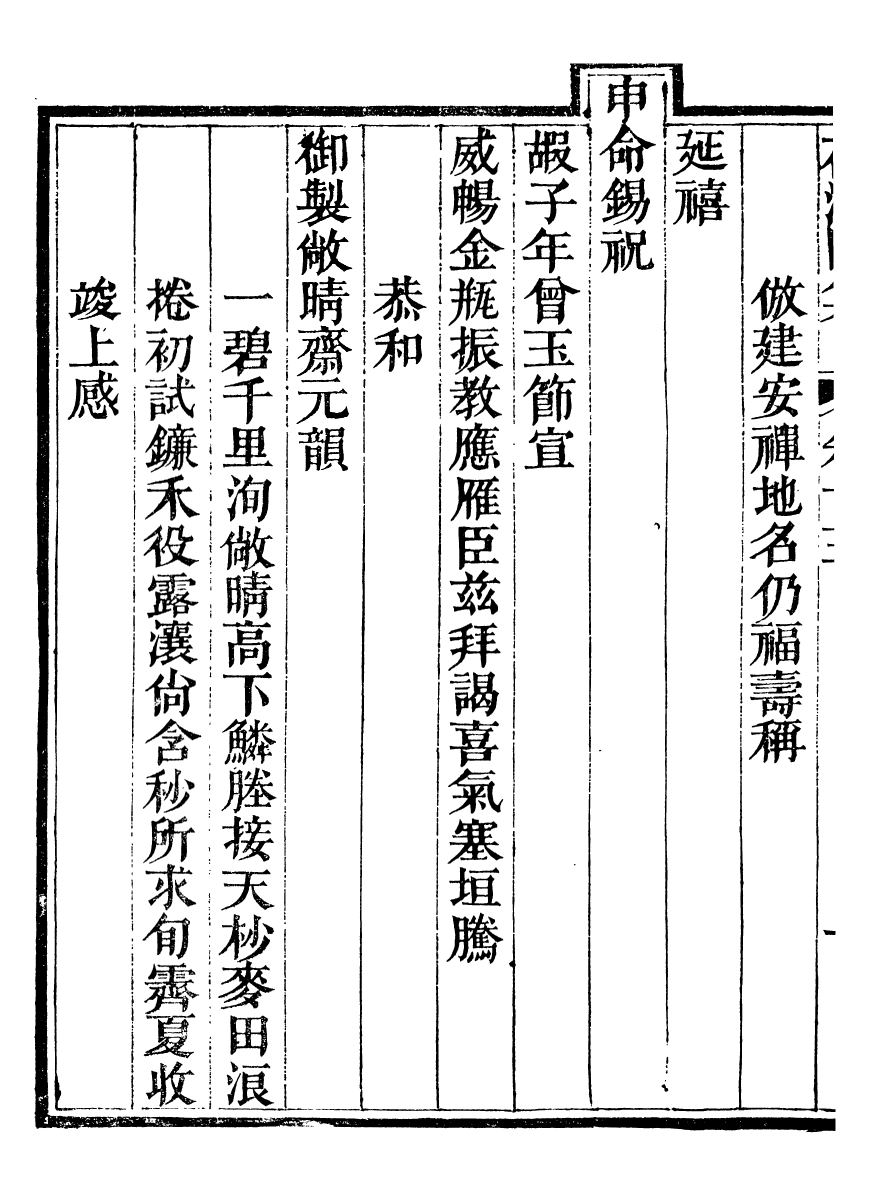 倣建安禪地名仍福壽稱
延禧
申命錫祝
嘏子年曾玉節宣
威暢金瓶振教應雁臣兹拜謁喜氣塞垣騰
恭和
御製敞晴齋元韻
一碧千里洵敞晴高下鱗塍接天杪麥田浪
捲初試鐮禾役露瀼尙含秒所求旬霽夏收
竣上感